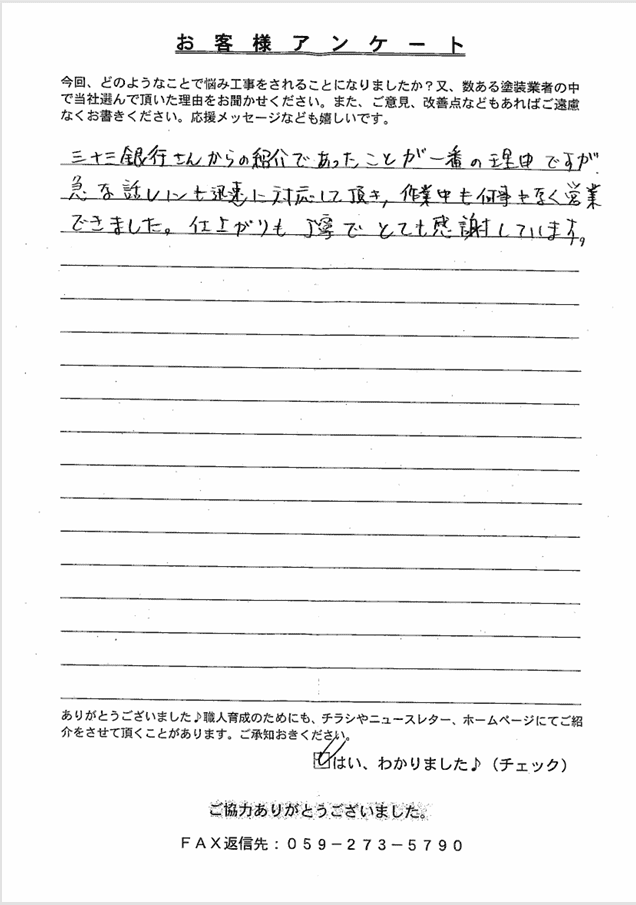 お客様アンケート
今回、どのようなことで悩み工事をされることになりましたか？又、数ある塗装業者の中
で当社選んで頂いた理由をお聞かせください。また、ご意見、改善点などもあればご遠慮
なくお書きください。応援メッセージなども嬉しいです。
三十三銀行さんからの紹介であったことが一番の理由ですが
急な話しにも迅速に対応して頂き、作業中も何事もなく営業
できました。仕上がりも丁寧でとても感謝しています。
ありがとうございました♪職人育成のためにも、チラシやニュースレター、ホームページにてご紹
介をさせて頂くことがあります。ご承知おきください。
はい、わかりました♪（チェック）
ご協力ありがとうございました。
ＦＡＸ返信先：０５９－２７３－５７９０